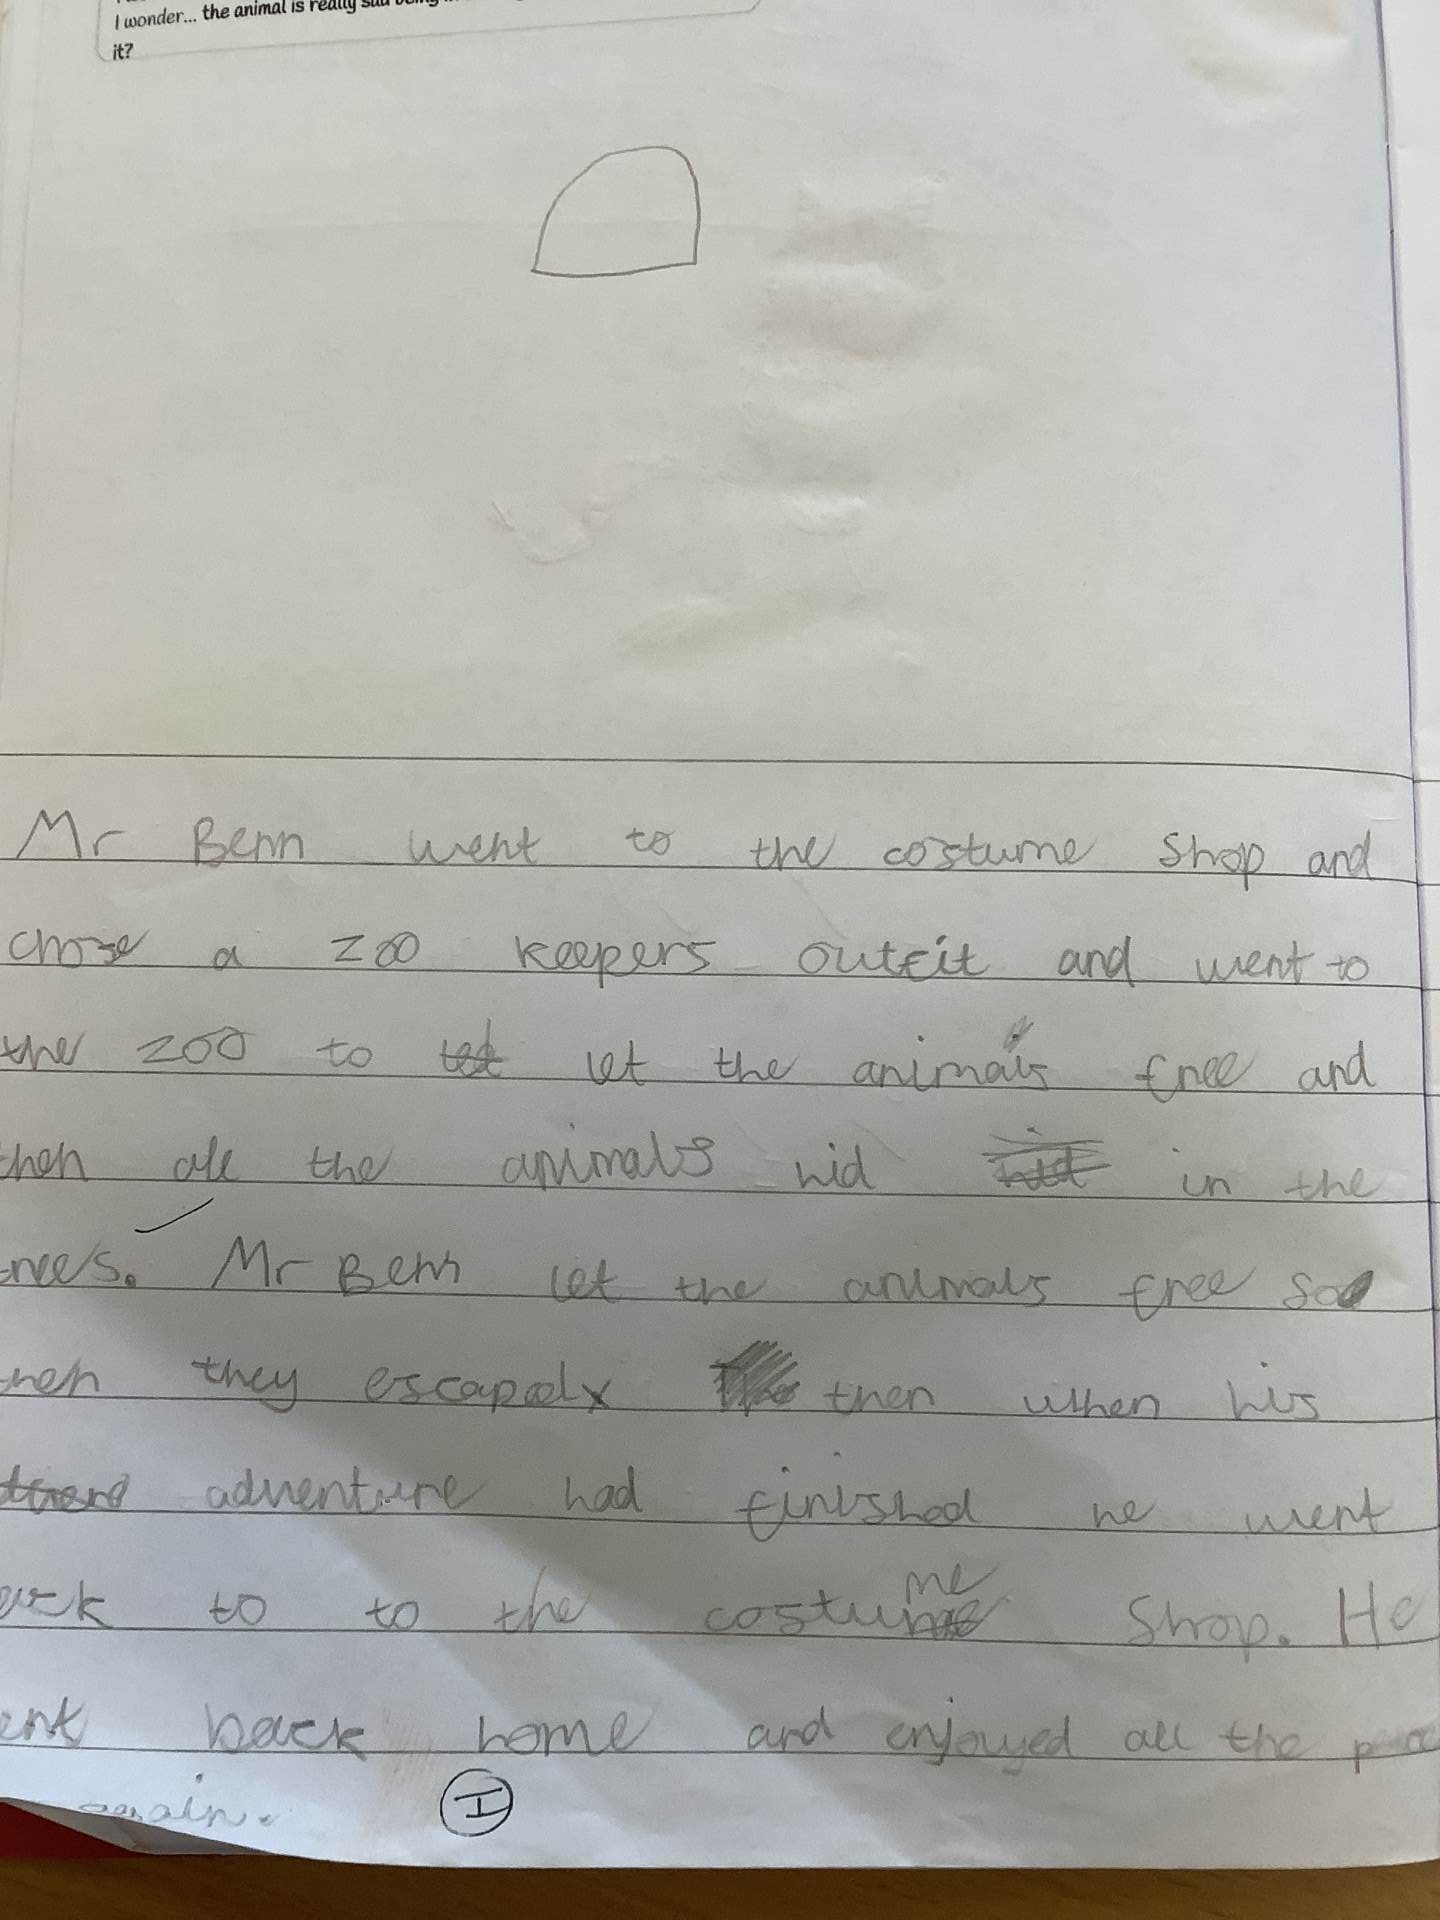 I wonder... the animal is really sad being
it?
Mr Benn went to the costume shop and
chose a zoo keepers outfit and went to
the zoo to let the animals free and
then all the animals hid in the
trees. Mr Benn let the animals free so
then they escaped then when his
adventure had finished he went
back to to the costume shop. He
went back home and enjoyed all the
again.
I